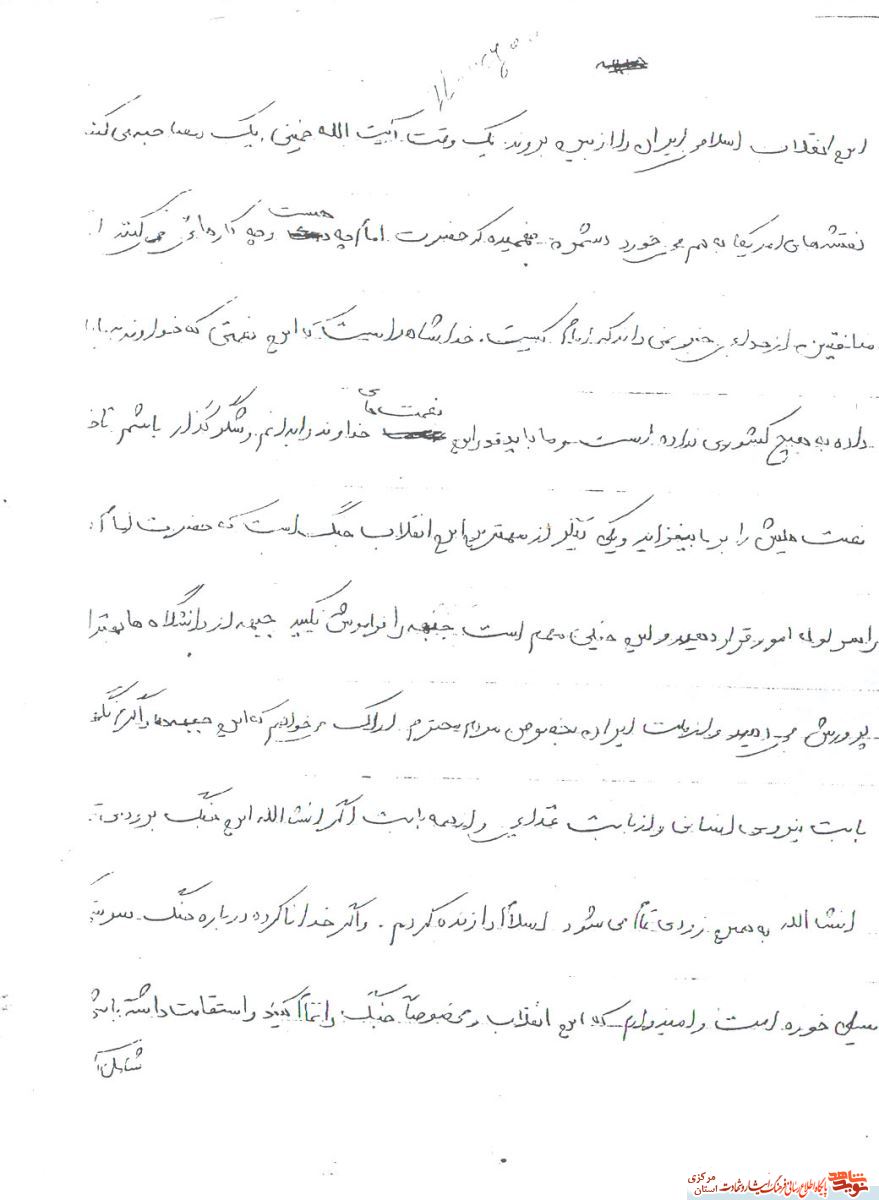 این انقلاب اسلامی ایران را از بین بروند. یک وقت آیت الله خمینی، یک مصاحبه می کند.
نقشه های امریکا به هم می خورد دشمن نفهمیده که حضرت امام چه هست و چه کارهائی می کنند
منافقین از خدا بی خبر نمی دانند که امام کیست. خدا شاهد است که این نعمتی که خداوند به ما
داده به هیچ کشوری نداده است و ما باید قدر این نعمت های خداوند را بدانیم و شکرگذار باشیم تا
نعمت هایش را بر ما بیفزاید و یکی دیگر از مهمترین این انقلاب جنگ است که حضرت امام
را در اول امور قرار دهید و این خیلی مهم است جبهه را فراموش نکنید جبهه از دانشگاه ها بهتر
پرورش می دهد و از ملت ایران بخصوص مردم محترم اراک می خواهم که این جبهه ها را گرم نگه
بابت نیروی انسانی و از بابت غذایی و از همه بابت اگر انشا الله این جنگ بزودی
انشا الله به همین زودی تمام می شود اسلام را زنده کردیم. و اگر خدا ناکرده درباره جنگ
سیلی خورده است و امیدوارم که این انقلاب و مخصوصاً جنگ را تمام کنید و استقامت داشته باشید
نوید شاهد
پایگاه اطلاع رسانی فرهنگ ایثار و شهادت
استان مرکزی